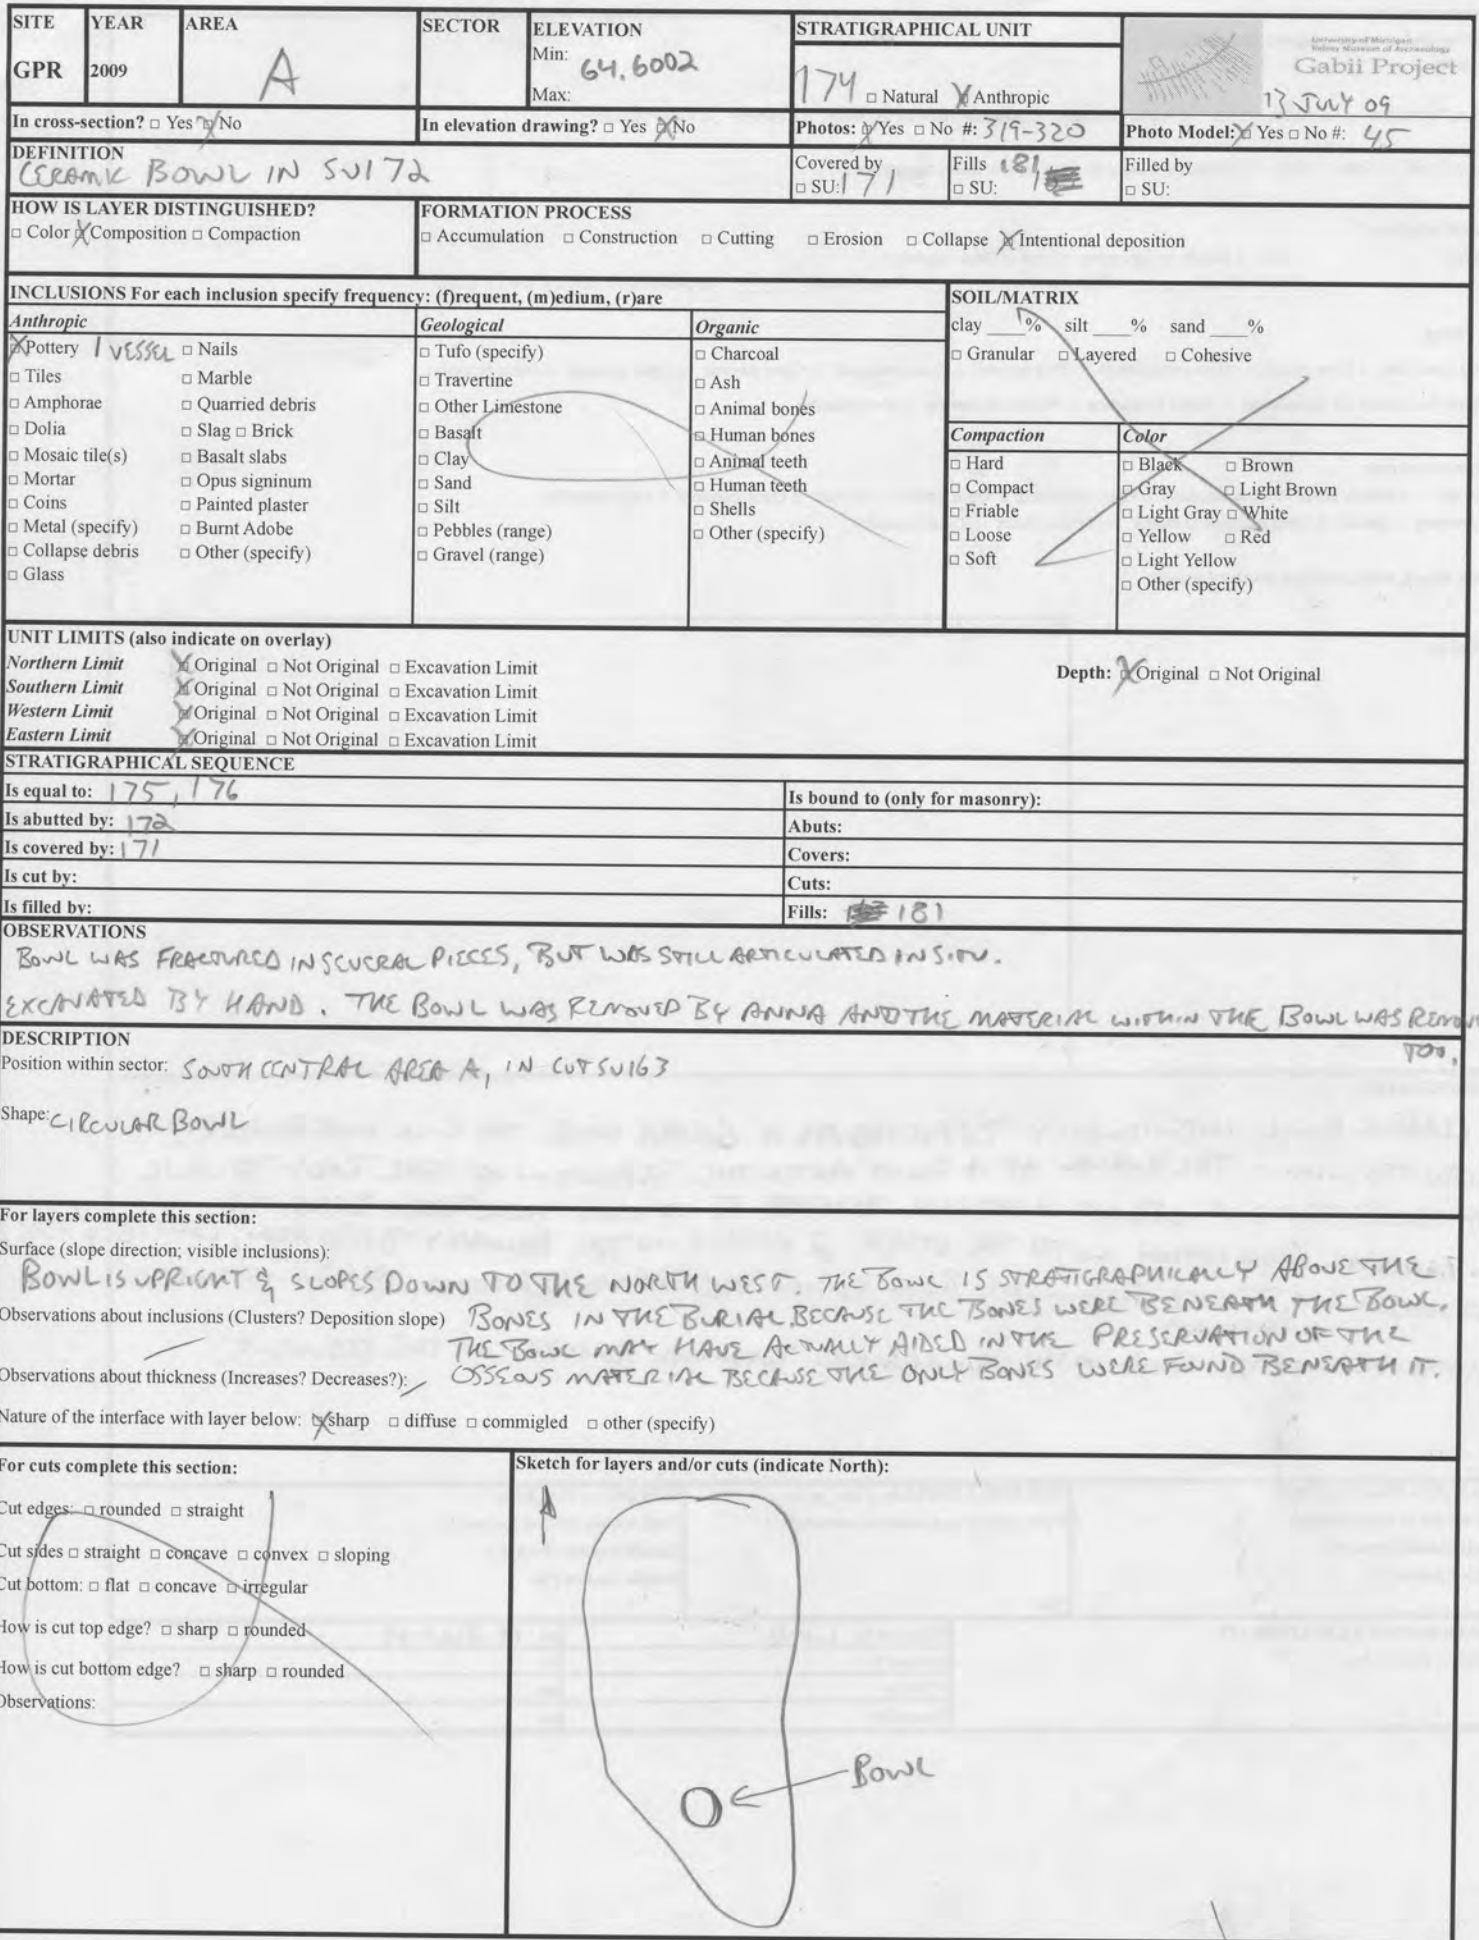 SITE YEAR AREA SECTOR ELEVATION STRATIGRAPHICAL UNIT
University of Michigan
Kelsey Museum of Archaeology
Gabii Project
GPR 2009 A Min: 64.6002 174 □ Natural ☒ Anthropic
Max: 13 JULY 09
In cross-section? □ Yes ☒ No In elevation drawing? □ Yes ☒ No Photos: ☒ Yes □ No #: 319-320 Photo Model: ☒ Yes □ No #: 45
DEFINITION
CERAMIC BOWL IN SU172
Covered by
□ SU: 171
Fills 181
□ SU:
Filled by
□ SU:
HOW IS LAYER DISTINGUISHED?
□ Color ☒ Composition □ Compaction
FORMATION PROCESS
□ Accumulation □ Construction □ Cutting □ Erosion □ Collapse ☒ Intentional deposition
INCLUSIONS For each inclusion specify frequency: (f)requent, (m)edium, (r)are
Anthropic
☒ Pottery 1 VESSEL □ Nails
□ Tiles □ Marble
□ Amphorae □ Quarried debris
□ Dolia □ Slag □ Brick
□ Mosaic tile(s) □ Basalt slabs
□ Mortar □ Opus signinum
□ Coins □ Painted plaster
□ Metal (specify) □ Burnt Adobe
□ Collapse debris □ Other (specify)
□ Glass
Geological
□ Tufo (specify)
□ Travertine
□ Other Limestone
□ Basalt
□ Clay
□ Sand
□ Silt
□ Pebbles (range)
□ Gravel (range)
Organic
□ Charcoal
□ Ash
□ Animal bones
□ Human bones
□ Animal teeth
□ Human teeth
□ Shells
□ Other (specify)
SOIL/MATRIX
clay ____% silt ____% sand ____%
□ Granular □ Layered □ Cohesive
Compaction
□ Hard
□ Compact
□ Friable
□ Loose
□ Soft
Color
□ Black □ Brown
□ Gray □ Light Brown
□ Light Gray □ White
□ Yellow □ Red
□ Light Yellow
□ Other (specify)
UNIT LIMITS (also indicate on overlay)
Northern Limit ☒ Original □ Not Original □ Excavation Limit
Depth: ☒ Original □ Not Original
Southern Limit ☒ Original □ Not Original □ Excavation Limit
Western Limit ☒ Original □ Not Original □ Excavation Limit
Eastern Limit ☒ Original □ Not Original □ Excavation Limit
STRATIGRAPHICAL SEQUENCE
Is equal to: 175, 176 Is bound to (only for masonry):
Is abutted by: 172 Abuts:
Is covered by: 171 Covers:
Is cut by: Cuts:
Is filled by: Fills: 181
OBSERVATIONS
BOWL WAS FRACTURED IN SEVERAL PIECES, BUT WAS STILL ARTICULATED IN SITU.
EXCAVATED BY HAND. THE BOWL WAS REMOVED BY ANNA AND THE MATERIAL WITHIN THE BOWL WAS REMOV
TOO.
DESCRIPTION
Position within sector: SOUTH CENTRAL AREA A, IN CUT SU163
Shape: CIRCULAR BOWL
For layers complete this section:
Surface (slope direction; visible inclusions):
BOWL IS UPRIGHT & SLOPES DOWN TO THE NORTH WEST. THE BOWL IS STRATIGRAPHICALLY ABOVE THE
Observations about inclusions (Clusters? Deposition slope) BONES IN THE BURIAL BECAUSE THE BONES WERE BENEATH THE BOWL.
THE BOWL MAY HAVE ACTUALLY AIDED IN THE PRESERVATION OF THE
Observations about thickness (Increases? Decreases?): OSSEOUS MATERIAL BECAUSE THE ONLY BONES WERE FOUND BENEATH IT.
Nature of the interface with layer below: ☒ sharp □ diffuse □ commigled □ other (specify)
For cuts complete this section:
Cut edges: □ rounded □ straight
Cut sides □ straight □ concave □ convex □ sloping
Cut bottom: □ flat □ concave □ irregular
How is cut top edge? □ sharp □ rounded
How is cut bottom edge? □ sharp □ rounded
Observations:
Sketch for layers and/or cuts (indicate North):
BOWL